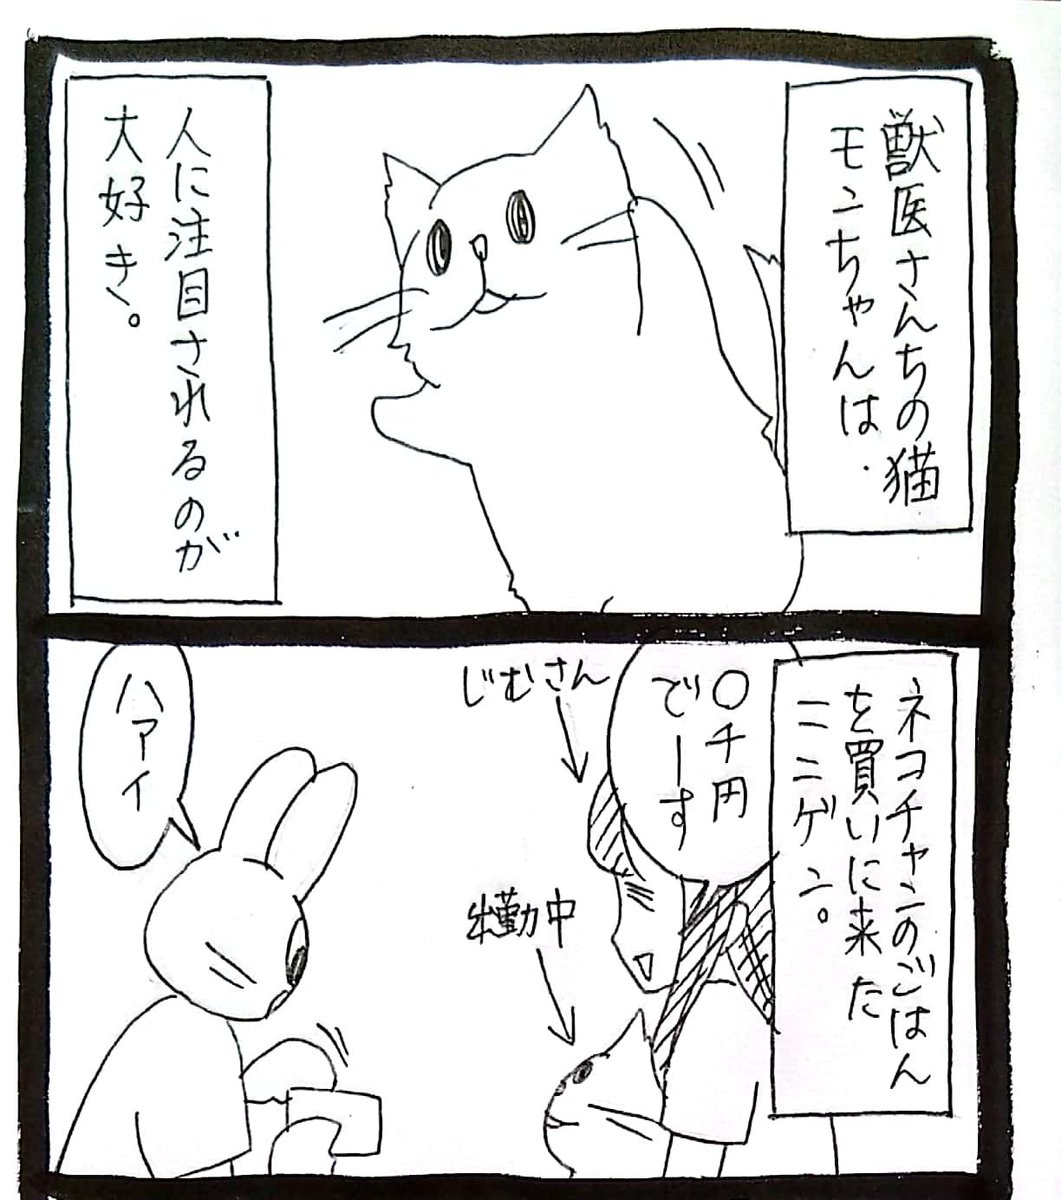 獣医さんちの猫
モンちゃんは、
人に注目されるのが
大好き。
ネコチャンのごはん
を買いに来た
ニンゲン。
〇千円
でーす
じむさん
出勤中
ハァイ